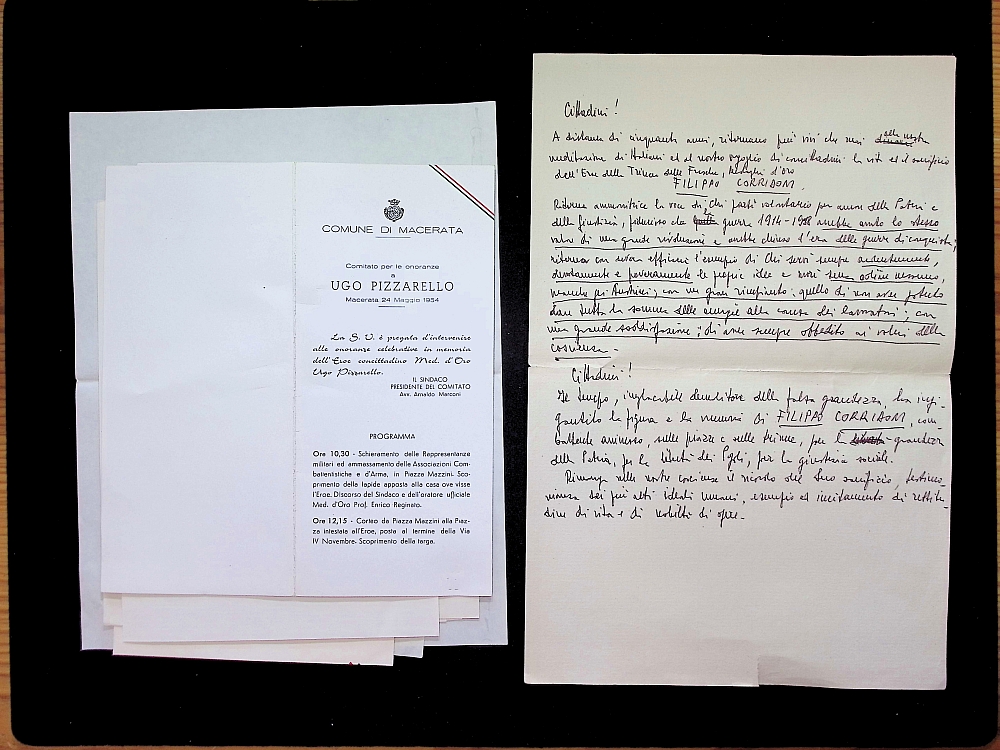 COMUNE DI MACERATA
Comitato per le onoranze
a
UGO PIZZARELLO
Macerata 24 Maggio 1954
La S. V. è pregata d'intervenire
alle onoranze celebrative in memoria
dell'Eroe concittadino Med. d'Oro
Ugo Pizzarello.
IL SINDACO
PRESIDENTE DEL COMITATO
Avv. Arnaldo Marconi
PROGRAMMA
Ore 10,30 - Schieramento delle Rappresentanze
militari ed ammassamento delle Associazioni Com-
battentistiche e d'Arma, in Piazza Mazzini. Sco-
primento della lapide apposta alla casa ove visse
l'Eroe. Discorso del Sindaco e dell'oratore ufficiale
Med. d'Oro Prof. Enrico Reginato.
Ore 12,15 - Corteo da Piazza Mazzini alla Piaz-
za intestata all'Eroe, posta al termine della Via
IV Novembre. Scoprimento della targa.
Cittadini!
A distanza di cinquanta anni, ritornano più vivi che mai alla nostra
meditazione di Italiani ed al nostro orgoglio di concittadini la vita ed il sacrificio
dell'Eroe della Trincea delle Frasche, medaglia d'oro
FILIPPO CORRIDONI.
Ritorna ammonitrice la voce di Chi partì volontario per amore della Patria e
della Giustizia, fiducioso che guerra 1914-1918 avrebbe avuto lo stesso
valore di una grande rivoluzione e avrebbe chiuso l'era delle guerre di conquista;
ritorna con severa efficacia l'esempio di Chi servì sempre ardentemente,
devotamente e poveramente le proprie idee e morì senza odiare nessuno,
neanche gli Austriaci; con un gran rimpianto: quello di non aver potuto
dare tutta la somma delle energie alla causa dei lavoratori; con
una grande soddisfazione: di aver sempre obbedito ai voleri della
coscienza.
Cittadini!
Il tempo, implacabile demolitore della falsa grandezza, ha ingi-
gantito la figura e la memoria di FILIPPO CORRIDONI, com-
battente animoso, sulle piazze e nelle trincee, per la grandezza
della Patria, per la libertà dei Popoli, per la giustizia sociale.
Rimanga nelle nostre coscienze il ricordo del Suo sacrificio, testimo-
nianza dei più alti ideali umani, esempio ed incitamento di retti-
dine di vita e di nobiltà di opere.